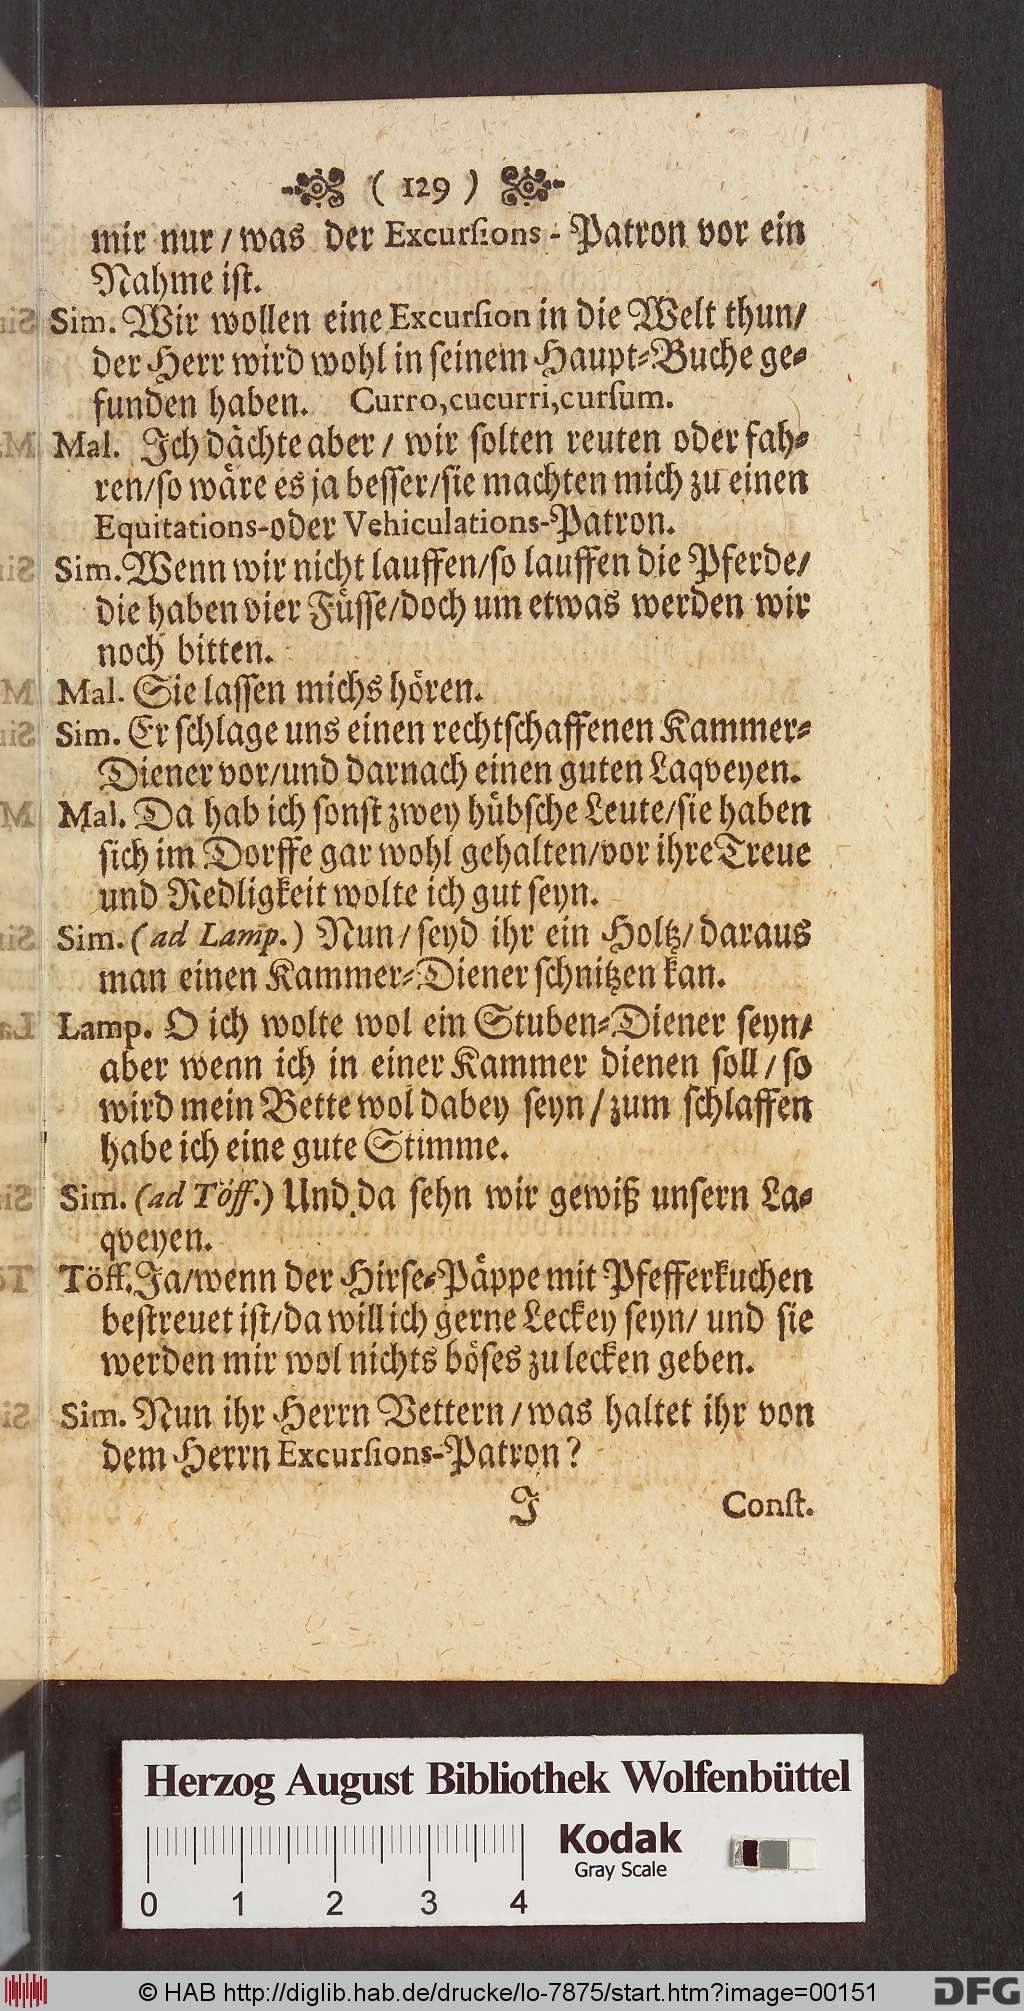 ( 129 )
mir nur / was der Excurſions - Patron vor ein
Nahme iſt.
Sim. Wir wollen eine Excurſion in die Welt thun/
der Herr wird wohl in ſeinem Haupt-Buche ge-
funden haben. Curro, cucurri, curſum.
Mal. Ich dächte aber / wir ſolten reuten oder fah-
ren/ſo wäre es ja beſſer/ſie machten mich zu einen
Equitations-oder Vehiculations-Patron.
Sim. Wenn wir nicht lauffen/ſo lauffen die Pferde/
die haben vier Füſſe/doch um etwas werden wir
noch bitten.
Mal. Sie laſſen michs hören.
Sim. Er ſchlage uns einen rechtſchaffenen Kammer-
Diener vor/und darnach einen guten Laqveyen.
Mal. Da hab ich ſonſt zwey hübſche Leute/ſie haben
ſich im Dorffe gar wohl gehalten/vor ihre Treue
und Redligkeit wolte ich gut ſeyn.
Sim. (ad Lamp.) Nun / ſeyd ihr ein Holtz/ daraus
man einen Kammer-Diener ſchnitzen kan.
Lamp. O ich wolte wol ein Stuben-Diener ſeyn/
aber wenn ich in einer Kammer dienen ſoll / ſo
wird mein Bette wol dabey ſeyn / zum ſchlaffen
habe ich eine gute Stimme.
Sim. (ad Töff.) Und da ſehn wir gewiß unſern La-
qveyen.
Töff. Ja/wenn der Hirſe-Päppe mit Pfefferkuchen
beſtreuet iſt/da will ich gerne Leckey ſeyn/ und ſie
werden mir wol nichts böſes zu lecken geben.
Sim. Nun ihr Herrn Vettern / was haltet ihr von
dem Herrn Excurſions-Patron ?
J Conſt.
Herzog August Bibliothek Wolfenbüttel
Kodak
Gray Scale
0 1 2 3 4
© HAB http://diglib.hab.de/drucke/lo-7875/start.htm?image=00151
DFG